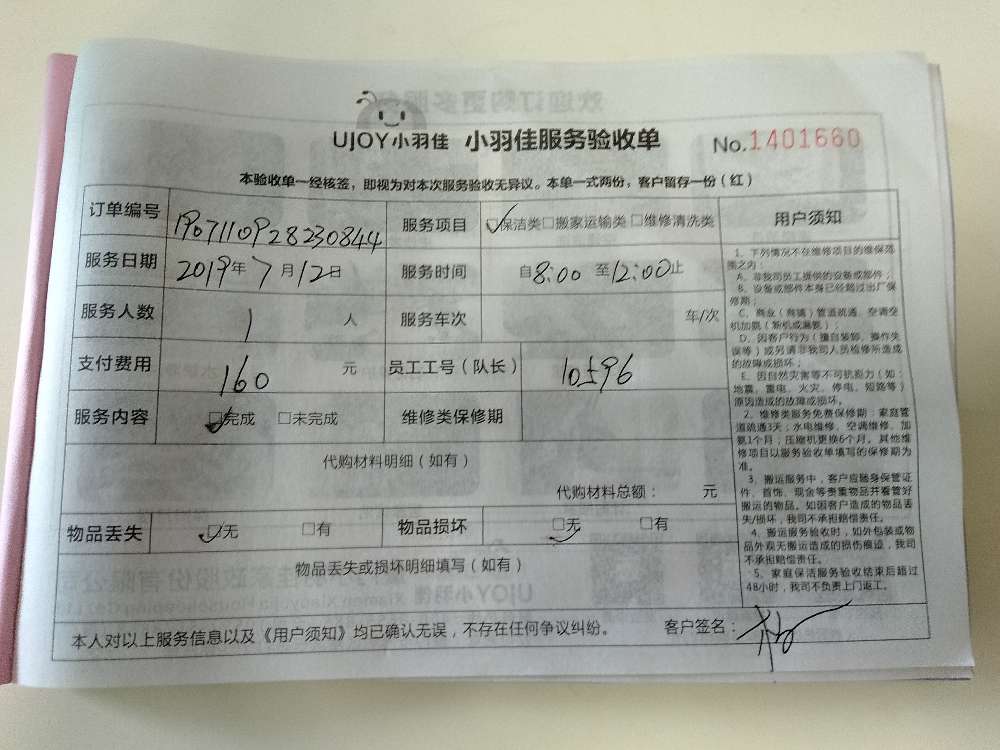 UJOY小羽佳 小羽佳服务验收单 No.1401660
本验收单一经核签，即视为对本次服务验收无异议。本单一式两份，客户留存一份（红）
订单编号 1907110928230844 服务项目 □保洁类□搬家运输类 □维修清洗类 用户须知
服务日期 2019年7月12日 服务时间 自8:00 至12:00止
服务人数 1 人 服务车次 车/次
支付费用 160 元 员工工号（队长） 10596
服务内容 □完成 □未完成 维修类保修期
代购材料明细（如有）
代购材料总额： 元
物品丢失 □无 □有 物品损坏 □无 □有
物品丢失或损坏明细填写（如有）
本人对以上服务信息以及《用户须知》均已确认无误，不存在任何争议纠纷。 客户签名：
1、下列情况不在维修项目的维保范
围之内：
A、非我司员工提供的设备或部件；
B、设备或部件本身已经超过出厂保
修期；
C、商业（商铺）管道疏通、空调空
机加氨（新机或漏氨）；
D、因客户行为（擅自装卸、操作失
误等）或另请非我司人员检修所造成
的故障或损坏；
E、因自然灾害等不可抗影力（如：
地震、雷电、火灾、停电、短路等）
原因造成的故障或损坏。
2、维修类服务免费保修期：家庭管
道疏通3天；水电维修、空调维修、加
氨1个月；压缩机更换6个月。其他维
修项目以服务验收单填写的保修期为
准。
3、搬运服务中，客户应随身保管证
件、首饰、现金等贵重物品并看管好
搬运的物品。如因客户造成的物品丢
失/损坏，我司不承担赔偿责任。
4、搬运服务验收时，如外包装或物
品外观无搬运造成的损伤痕迹，我司
不承担赔偿责任。
5、家庭保洁服务验收结束后超过
48小时，我司不负责上门返工。